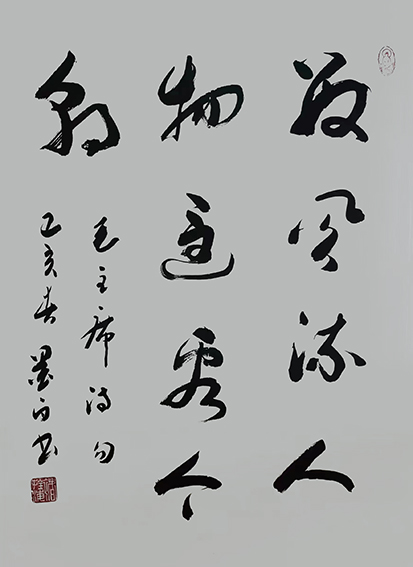 数风流人
物还看今
朝
毛主席诗句
己亥春墨白书